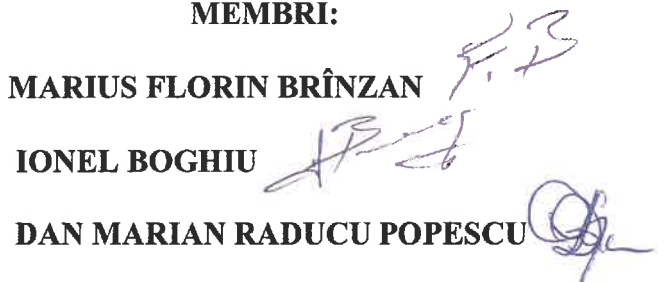 MEMBRI:
MARIUS FLORIN BRÎNZAN
IONEL BOGHIU
DAN MARIAN RADUCU POPESCU